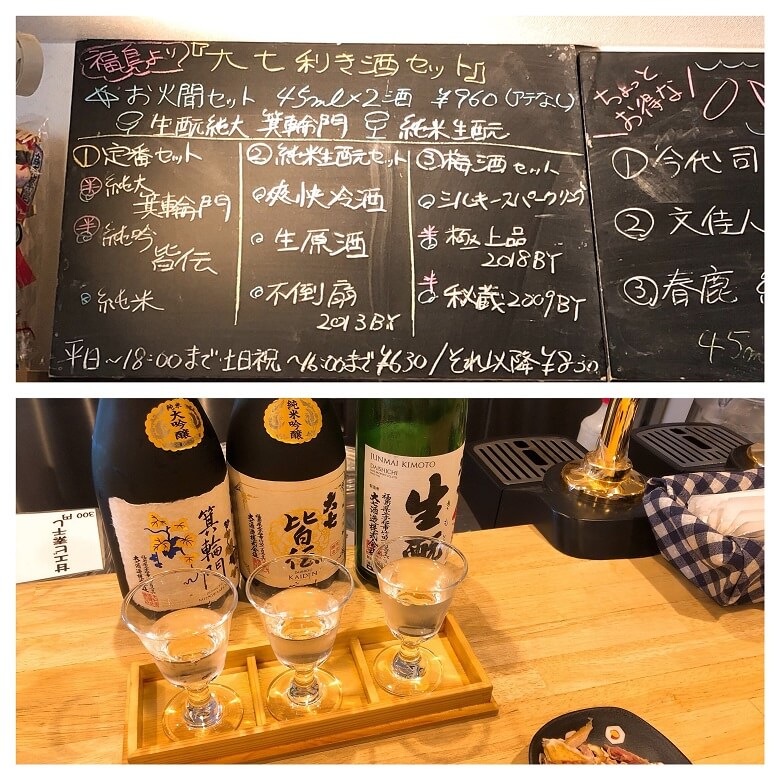 福島より『大七利き酒セット』
☆お火聞セット 45ml×2酒 ¥960(アテなし)
生酛純大 箕輪門 純米生酛
①定番セット
純大
箕輪門
純吟
皆伝
純米
②純米生酛セット
爽快冷酒
生原酒
不倒扇
2013BY
③梅酒セット
シルキースパークリング
極上品
2018BY
秘蔵2009BY
平日~18:00まで土日祝~16:00まで¥630/それ以降¥830
ちょっと
お得な!
①今代司
②文佳人
③春鹿
45m
純米
大吟醸
箕輪門
純米吟醸
大七
皆伝
KAIDEN
JUNMAI KIMOTO
DAISHICHI
生酛
甘エビ素干し
300円